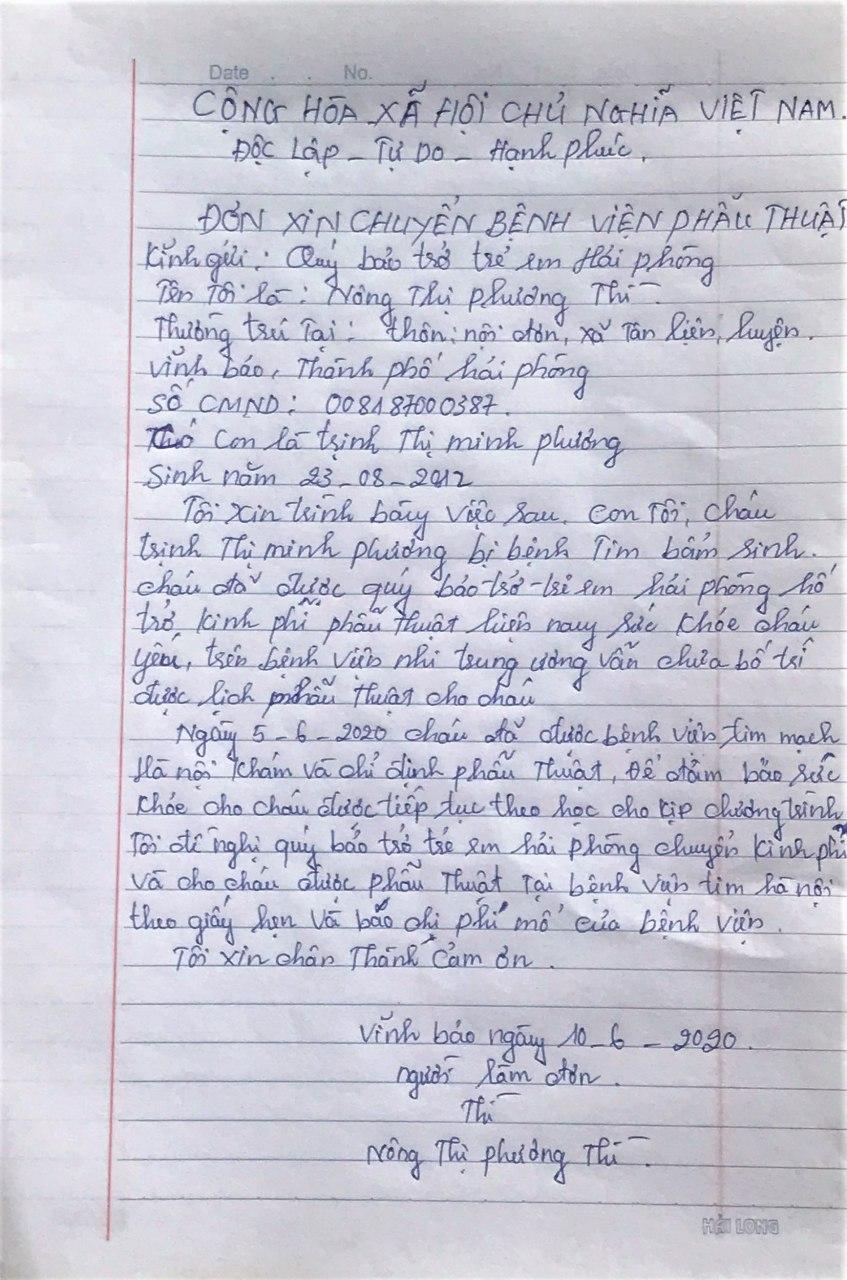 Date . . No.
CỘNG HÒA XÃ HỘI CHỦ NGHĨA VIỆT NAM.
ĐỘC LẬP - TỰ DO - Hạnh phúc.
ĐƠN XIN CHUYỂN BỆNH VIỆN PHẪU THUẬT
Kính gửi: Quỹ bảo trợ trẻ em Hải phòng
Tên Tôi là: Nông Thị phương Thi
Thường trú Tại: thôn: nội đơn, xã Tân liên, huyện.
vĩnh bảo, Thành phố hải phòng
SỐ CMND: 008187000387.
Có Con là trịnh Thị minh phương
Sinh năm 23-08-2012
Tôi xin trình bày việc sau. Con Tôi, cháu
trịnh Thị minh phương bị bệnh Tim bẩm sinh.
cháu đã được quỹ bảo trợ trẻ em hải phòng hỗ
trợ kinh phí phẫu thuật hiện nay sức khỏe cháu
yếu, trên bệnh viện nhi trung ương vẫn chưa bố trí
được lịch phẫu thuật cho cháu
Ngày 5-6-2020 cháu đã được bệnh viện tim mạch
Hà nội khám và chỉ định phẫu Thuật, Để đảm bảo sức
khỏe cho cháu được tiếp tục theo học cho kịp chương trình
Tôi đề nghị quỹ bảo trợ trẻ em hải phòng chuyển kinh phí
và cho cháu được phẫu Thuật Tại bệnh viện tim hà nội
theo giấy hẹn và báo chi phí mổ của bệnh viện.
Tôi xin chân Thành Cảm ơn.
Vĩnh bảo ngày 10-6-2020.
người làm đơn.
Thi
Nông Thị phương Thi.
HẢI LONG